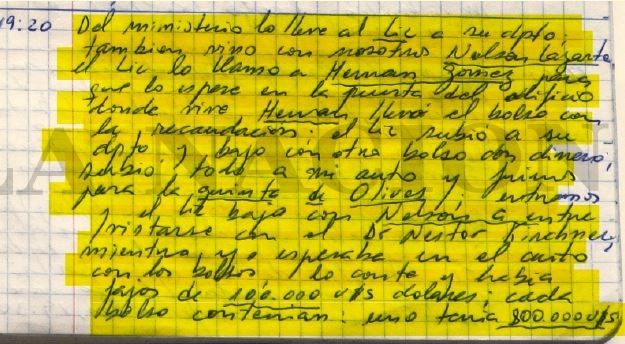 19:20 Del ministerio lo lleve al Lic a su dpto.
tambien vino con nosotros Nelson Lazarte
el Lic lo llamo a Hernan Gomez para
que lo espere en la puerta del edificio
donde vive Hernan llevó el bolso con
la recaudación; el Lic subio a su
dpto y bajo con otro bolso con dinero,
subió todo a mi auto y fuimos
para la quinta de Olivos; entramos
y el Lic bajo con Nelson a entre
vistarse con el Dr Nestor Kirchner,
mientras yo esperaba en el auto
con los bolsos, lo conte y habia
fajos de 100.000 U$S dolares; cada
bolso contenian: uno tenia 800.000 U$S
LA NACION